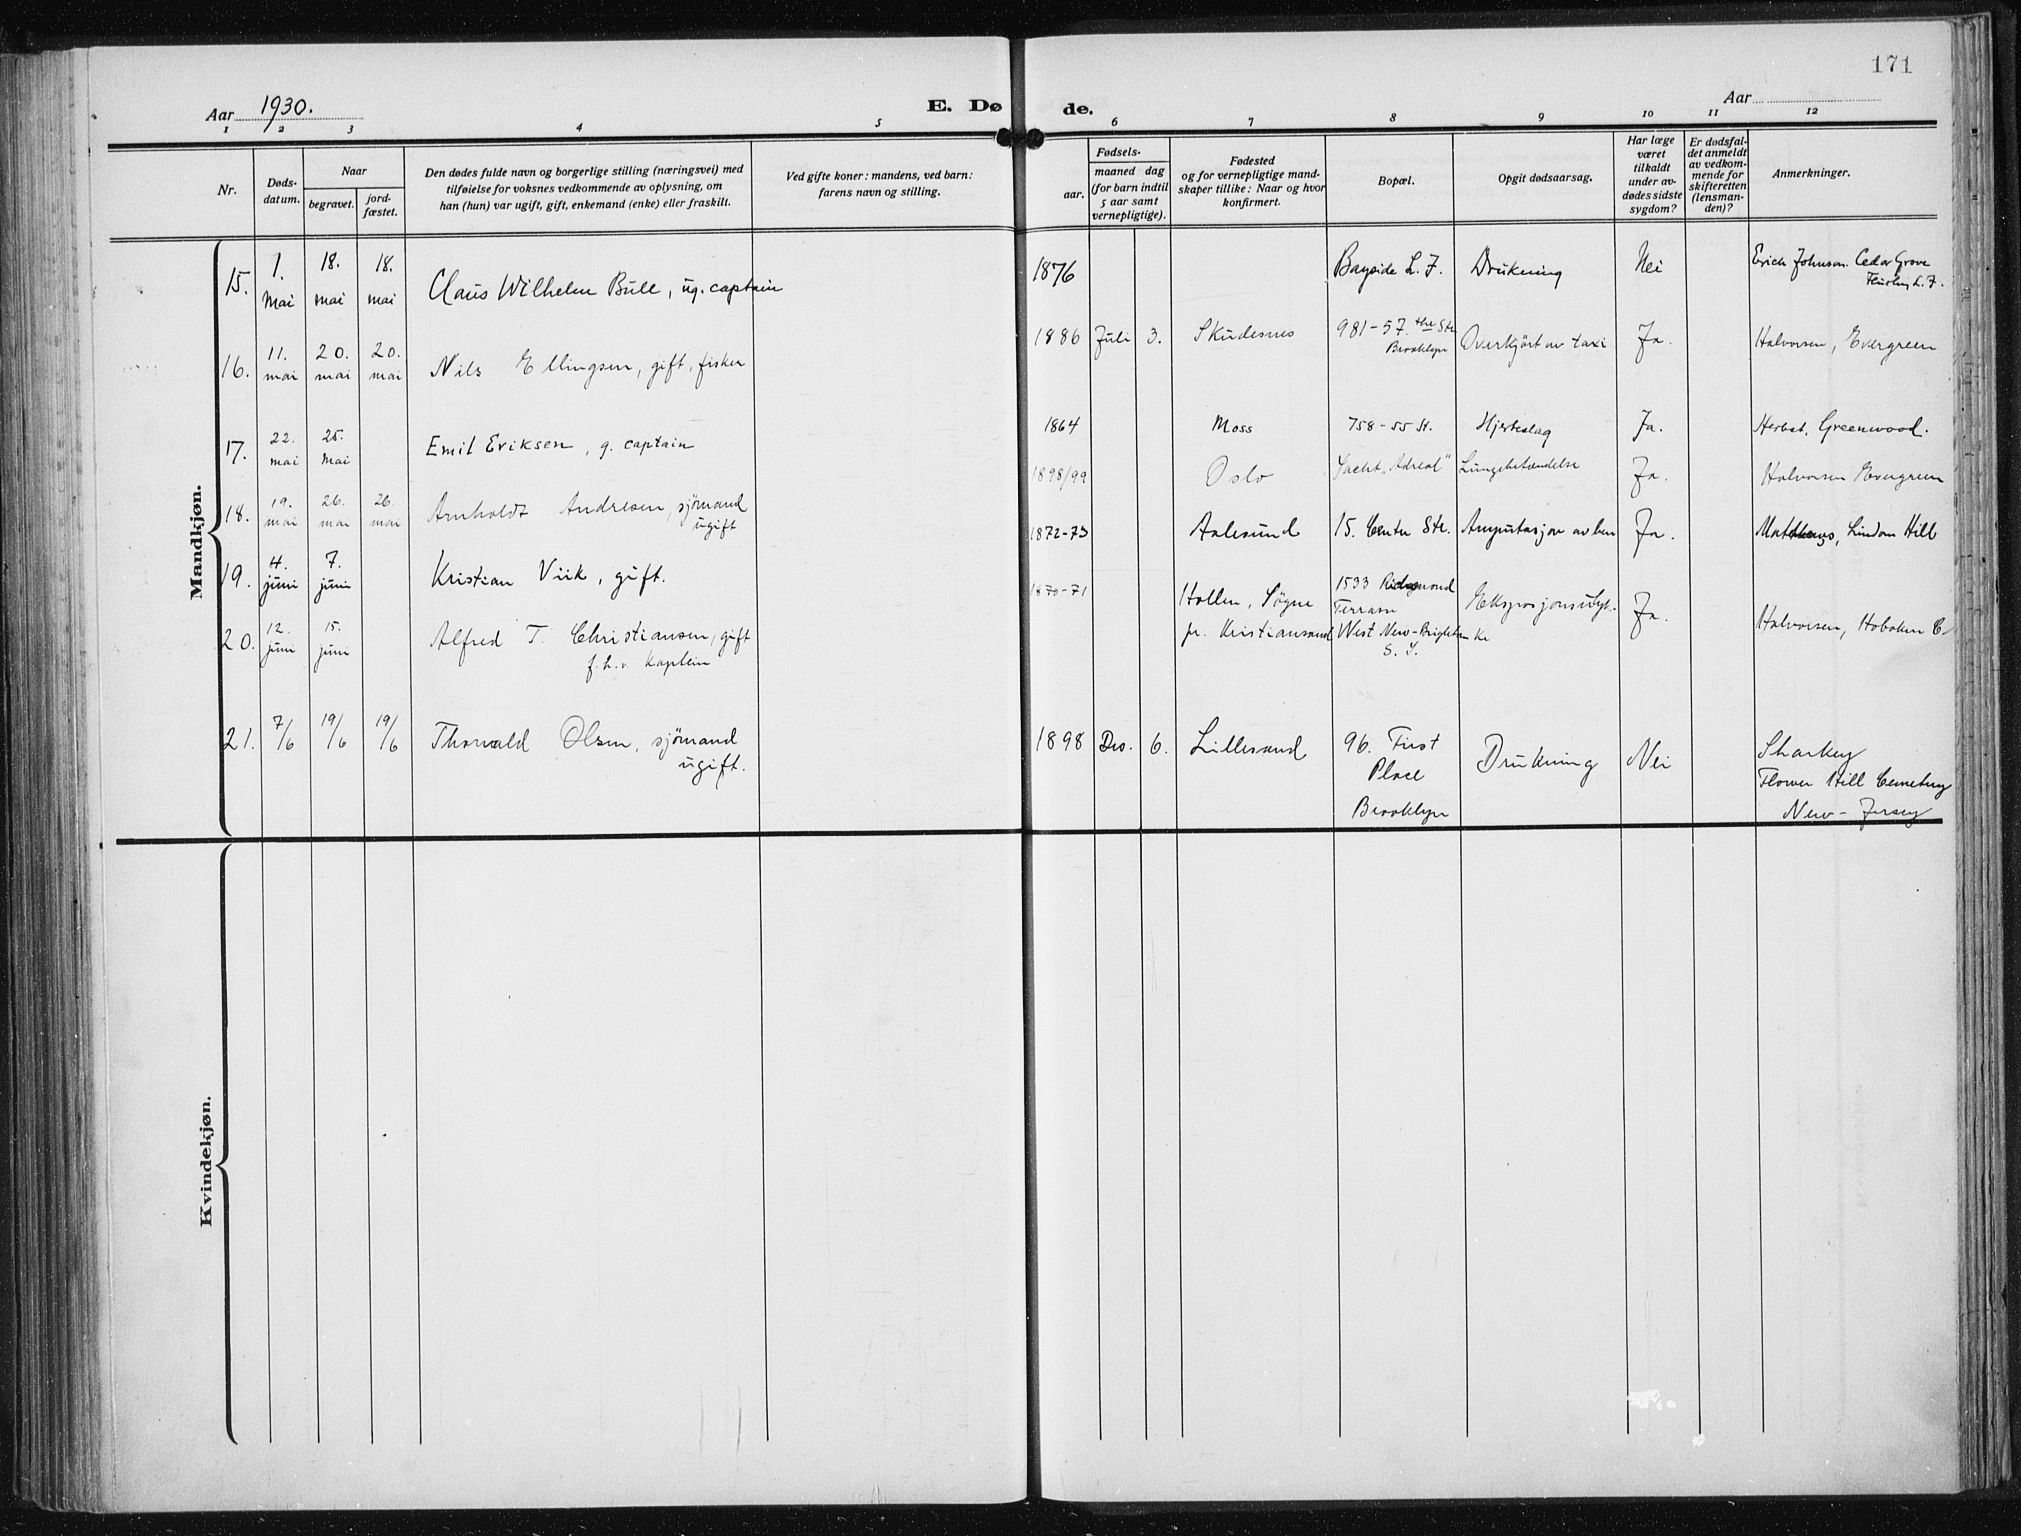 171
Aar 1930.
E. Døde.
Aar
1 2 3 4 5 6 7 8 9 10 11 12
Nr.
Døds-
datum.
Naar
begravet.
jord-
fæstet.
Den dødes fulde navn og borgerlige stilling (næringsvei) med
tilføielse for voksnes vedkommende av oplysning, om
han (hun) var ugift, gift, enkemand (enke) eller fraskilt.
Ved gifte koner: mandens, ved barn:
farens navn og stilling.
Fødsels-
aar.
maaned dag
(for barn indtil
5 aar samt
vernepligtige).
Fødested
og for vernepligtige mand-
skaper tillike: Naar og hvor
konfirmert.
Bopæl.
Opgit dødsaarsag.
Har læge
været
tilkaldt
under av-
dødes sidste
sygdom?
Er dødsfal-
det anmeldt
av vedkom-
mende for
skifteretten
(lensman-
den)?
Anmerkninger.
Mandkjøn.
15. 1. mai 18. mai 18. mai Claus Wilhelm Bull, ug. captain 1876 Bayside L. I. Drukning Nei Erich Johnson. Cedar Grove
Flushing L. I.
16. 11. mai 20. mai 20. mai Nils Ellingsen, gift, fisker 1886 Juli 3. Skudesnes 981-57. the Str Brooklyn Overkjört av taxi Ja. Halvorsen, Evergreen
17. 22. mai 25. mai Emil Eriksen, g. captain 1864 Moss 758-55 St. Hjerteslag Ja. Herbst, Greenwood.
18. 19. mai 26. mai 26. mai Arnholdt Andresen, sjömand
ugift 1898/99 Oslo Yacht "" Lungebetændelse Ja. Halvorsen Evergreen
19. 4. juni 7. juni Kristian Viik, gift. 1872-73 Aalesund 15. Center Str. Amputasjon av ben Ja. Matthews, Linden Hill
20. 12. juni 15. juni Alfred T. Christiansen, gift
f. h. v. kaptein 1870-71 Hollen, Søgne
pr. Kristiansand 1533 Richmond
Terrasse
West New-Brighton
S. I. Ja. Halvorsen, Hoboken C
21. 7/6 19/6 19/6 Thorvald Olsen, sjömand
ugift. 1898 Des. 6. Lillesand 96. First
Place
Brooklyn Drukning Nei Sharkey
Flower Hill Cemetery
New-Jersey
Kvindekjøn.